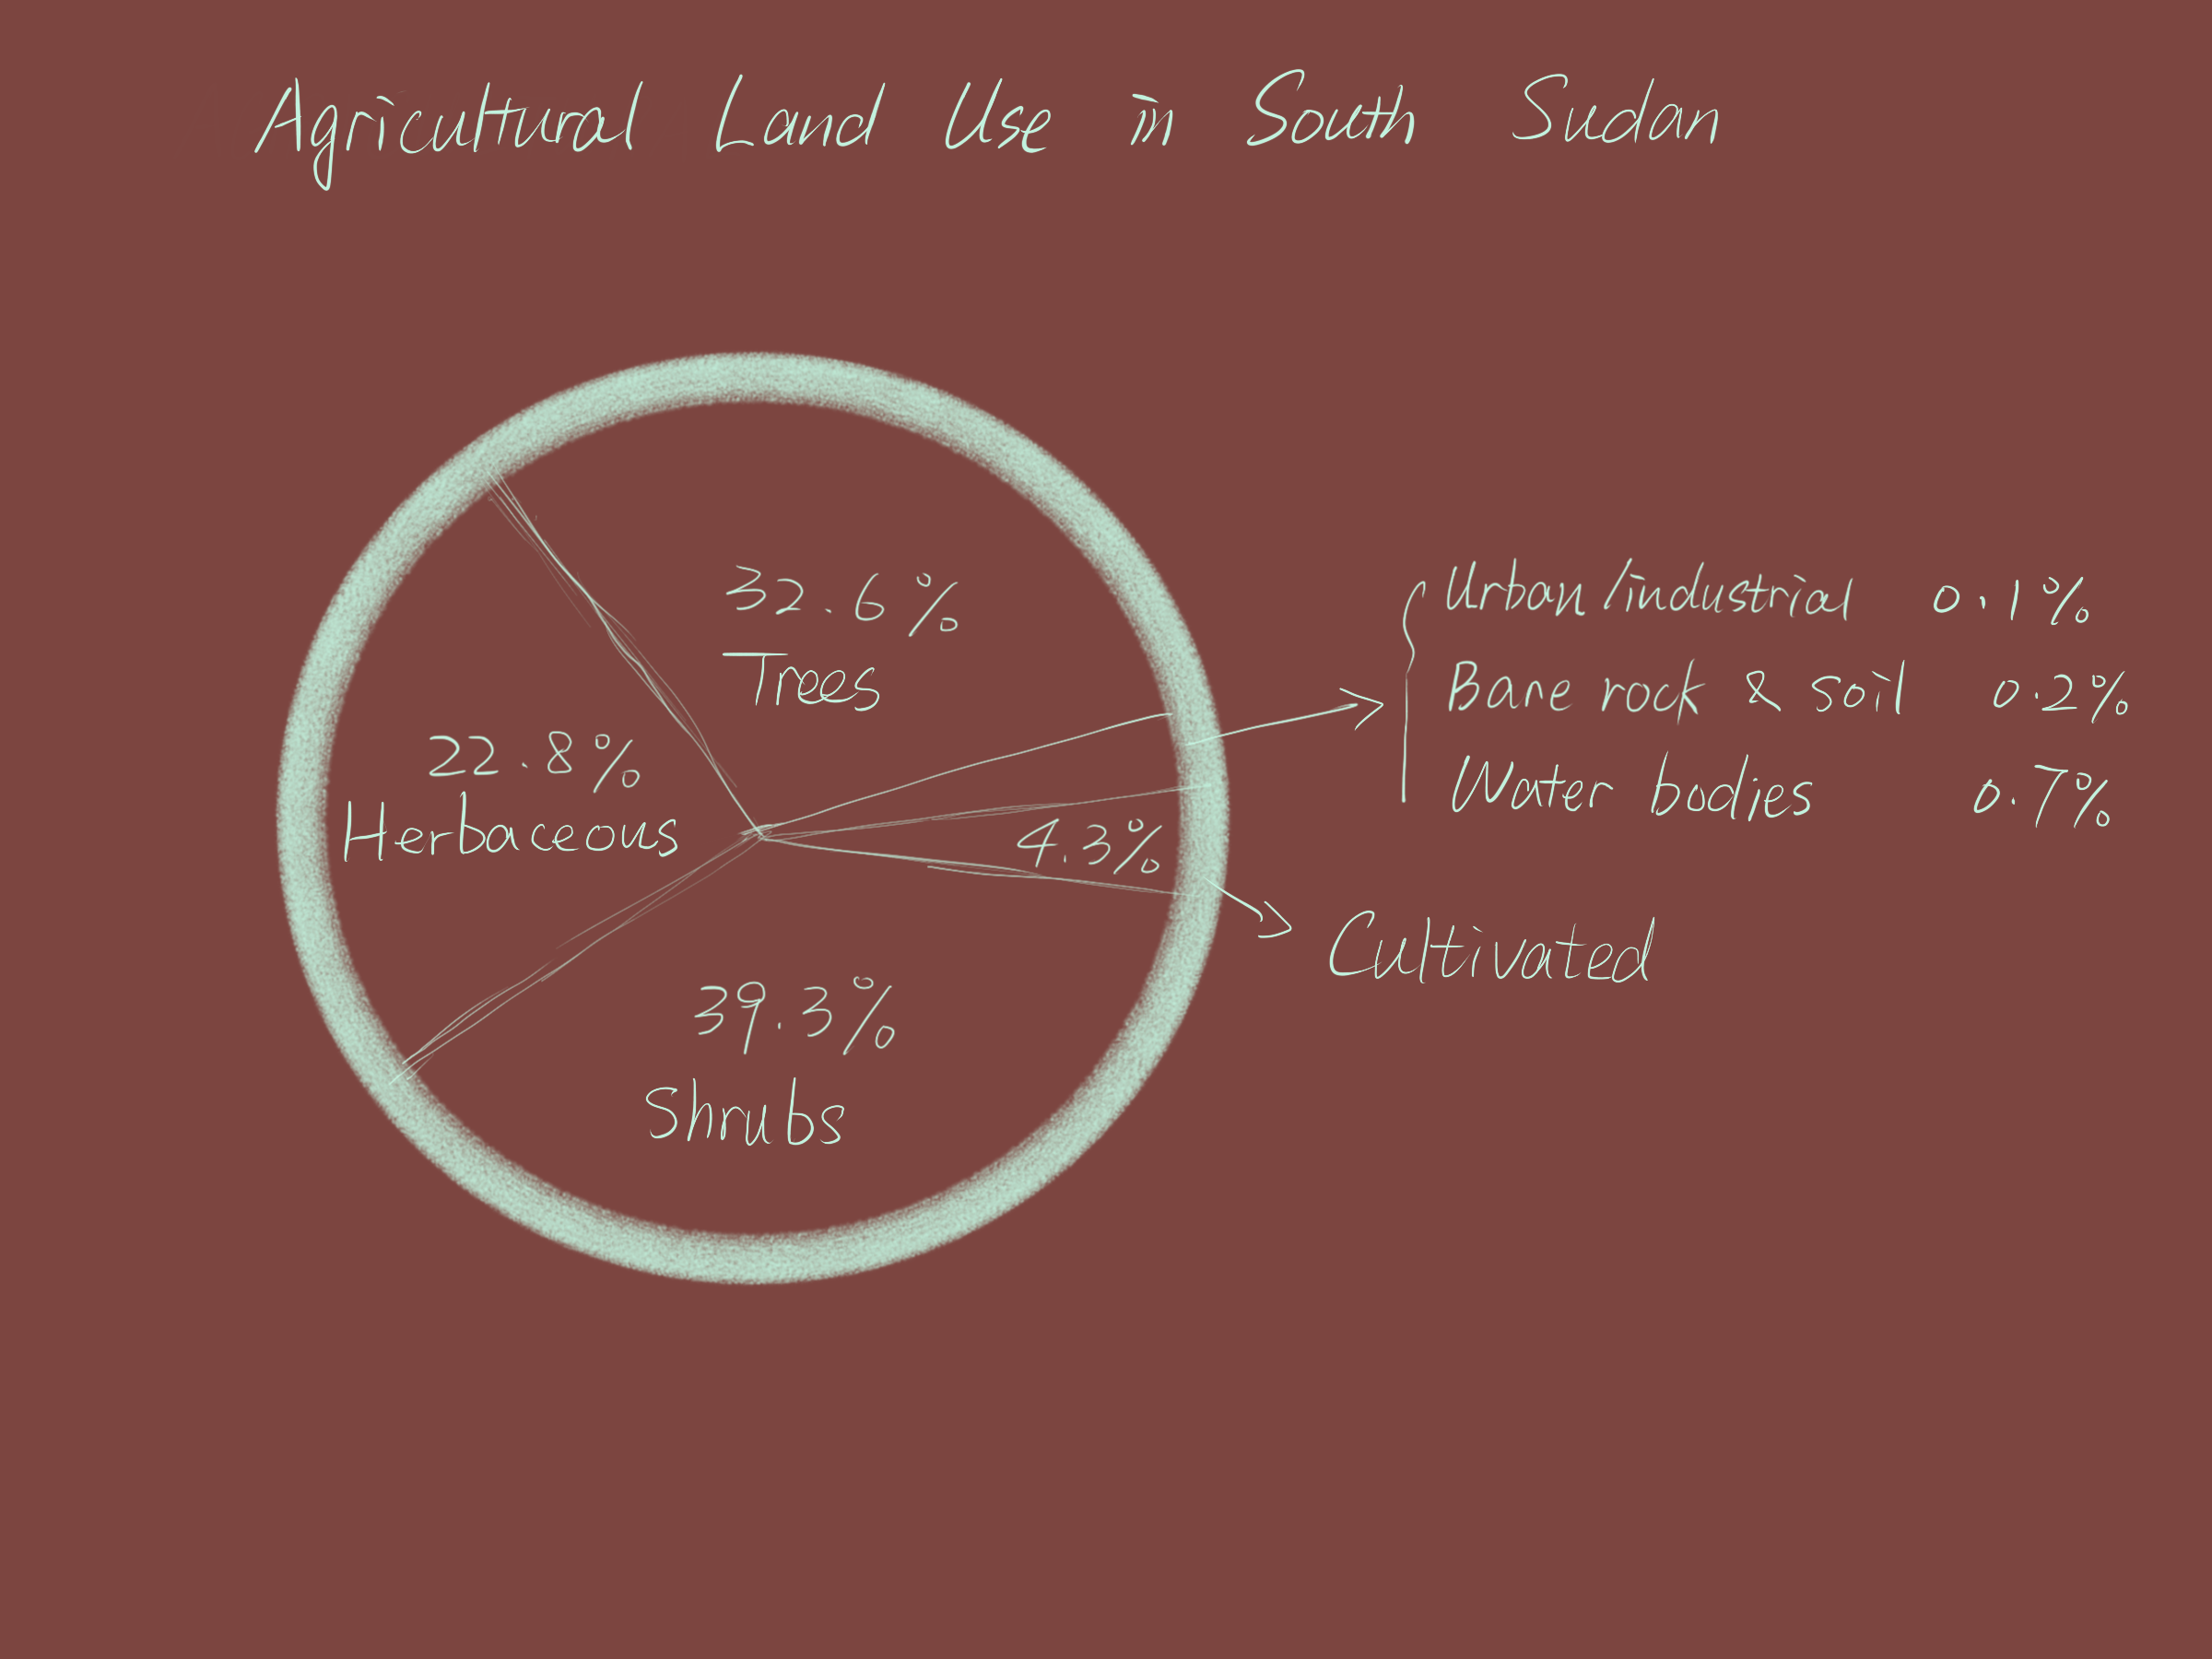 Agricultural Land Use in South Sudan
32.6%
Trees
22.8%
Herbaceous
39.3%
Shrubs
4.3%
Cultivated
Urban/industrial 0.1%
Bare rock & soil 0.2%
Water bodies 0.7%